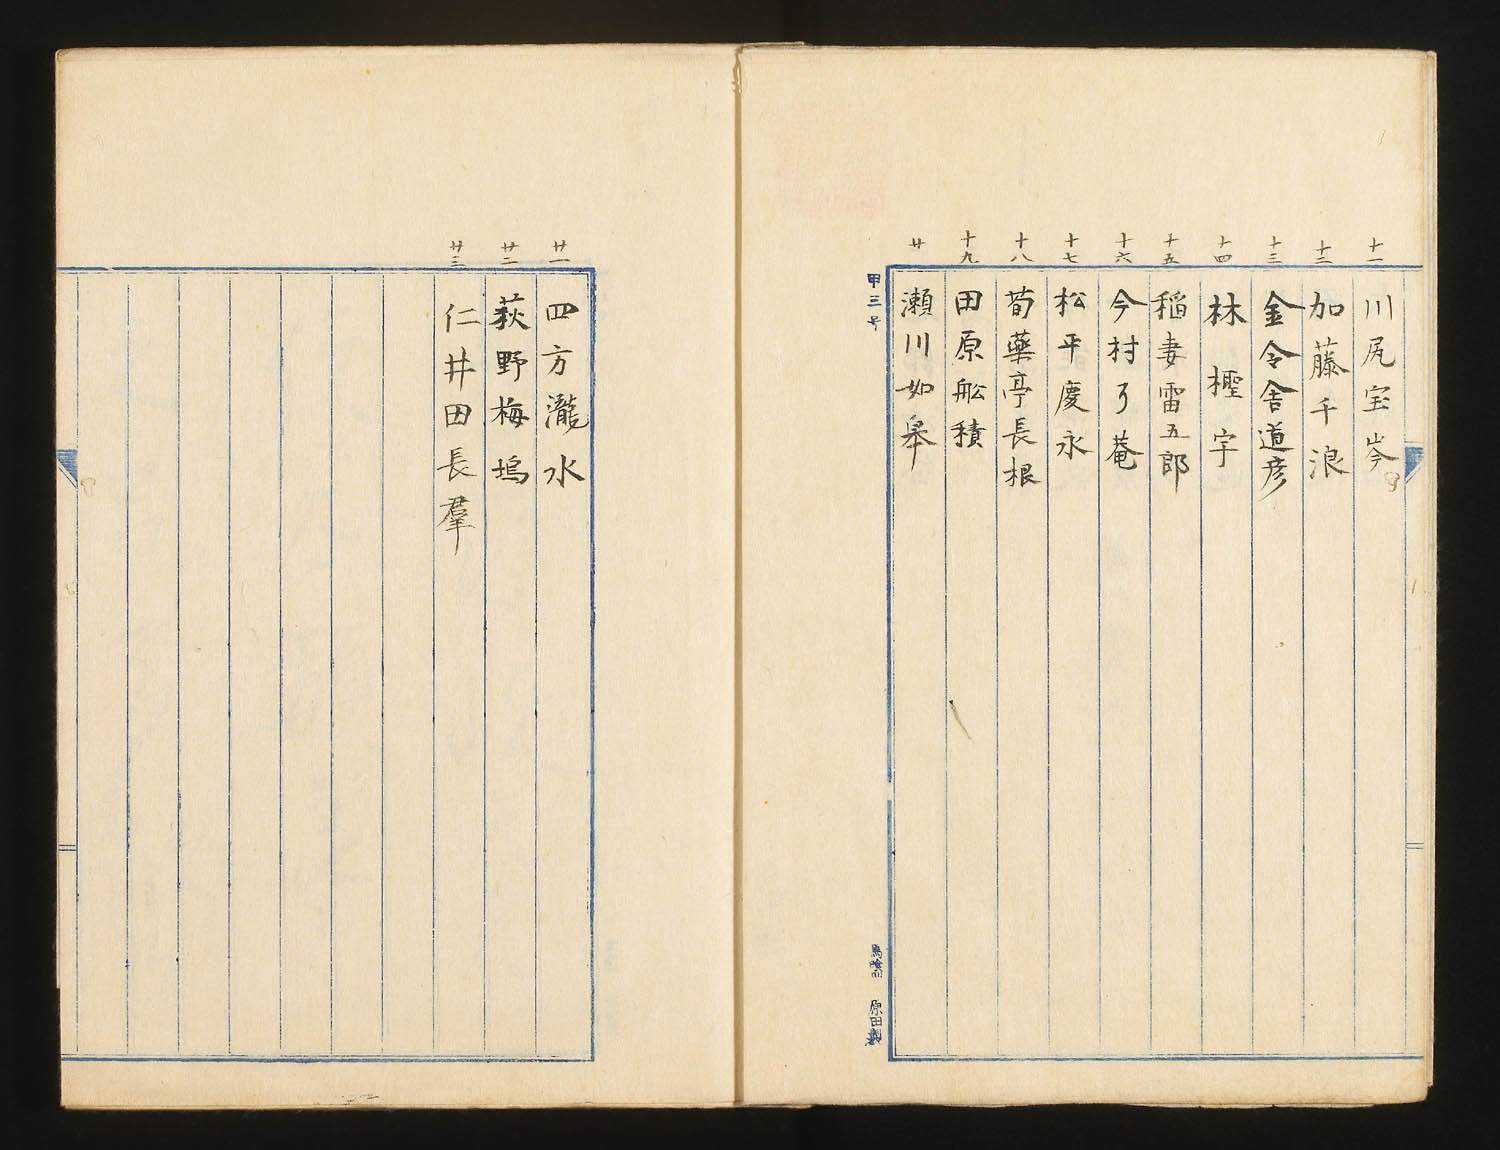 十一 川尻宝岑
十二 加藤千浪
十三 金令舎道彦
十四 林檉宇
十五 稲妻雷五郎
十六 今村了菴
十七 松平慶永
十八 芍薬亭長根
十九 田原船積
廿 瀬川如皐
甲三号
原田製
廿一 四方瀧水
廿二 荻野梅塢
廿三 仁井田長羣